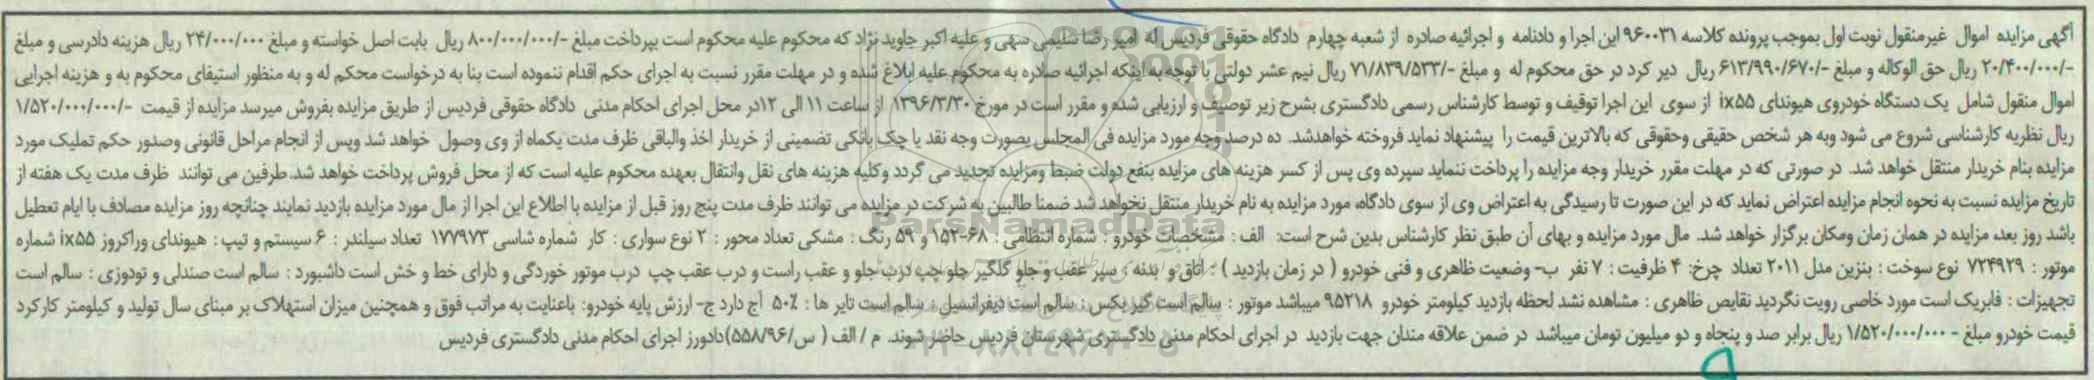 آگهی مزایده اموال غیرمنقول نوبت اول بموجب پرونده کلاسه ۹۶۰۰۳۱ این اجرا و دادنامه و اجرائیه صادره از شعبه چهارم دادگاه حقوقی فردیس له امیر رضا سلیمی سهی و علیه اکبر جاوید نژاد که محکوم علیه محکوم است بپرداخت مبلغ -/۸۰۰/۰۰۰/۰۰۰ ریال بابت اصل خواسته و مبلغ ۲۴/۰۰۰/۰۰۰ ریال هزینه دادرسی و مبلغ
-/۲۰/۴۰۰/۰۰۰ ریال حق الوکاله و مبلغ -/۶۱۳/۹۹۰/۶۷۰ ریال دیر کرد در حق محکوم له و مبلغ -/۷۱/۸۳۹/۵۳۳ ریال نیم عشر دولتی با توجه به اینکه اجرائیه صادره به محکوم علیه ابلاغ شده و در مهلت مقرر نسبت به اجرای حکم اقدام ننموده است بنا به درخواست محکم له و به منظور استیفای محکوم به و هزینه اجرایی
اموال منقول شامل یک دستگاه خودروی هیوندای ix۵۵ از سوی این اجرا توقیف و توسط کارشناس رسمی دادگستری بشرح زیر توصیف و ارزیابی شده و مقرر است در مورخ ۱۳۹۶/۳/۳۰ از ساعت ۱۱ الی ۱۲در محل اجرای احکام مدنی دادگاه حقوقی فردیس از طریق مزایده بفروش میرسد مزایده از قیمت -/۱/۵۲۰/۰۰۰/۰۰۰
ریال نظریه کارشناسی شروع می شود وبه هر شخص حقیقی وحقوقی که بالاترین قیمت را پیشنهاد نماید فروخته خواهدشد. ده درصد وجه مورد مزایده فی المجلس بصورت وجه نقد یا چک بانکی تضمینی از خریدار اخذ والباقی ظرف مدت یکماه از وی وصول خواهد شد وپس از انجام مراحل قانونی وصدور حکم تملیک مورد
مزایده بنام خریدار منتقل خواهد شد. در صورتی که در مهلت مقرر خریدار وجه مزایده را پرداخت ننماید سپرده وی پس از کسر هزینه های مزایده بنفع دولت ضبط ومزایده تجدید می گردد وکلیه هزینه های نقل وانتقال بعهده محکوم علیه است که از محل فروش پرداخت خواهد شد. طرفین می توانند ظرف مدت یک هفته از
تاریخ مزایده نسبت به نحوه انجام مزایده اعتراض نماید که در این صورت تا رسیدگی به اعتراض وی از سوی دادگاه، مورد مزایده به نام خریدار منتقل نخواهد شد ضمنا طالبین به شرکت در مزایده می توانند ظرف مدت پنج روز قبل از مزایده با اطلاع این اجرا از مال مورد مزایده بازدید نمایند چنانچه روز مزایده مصادف با ایام تعطیل
باشد روز بعد، مزایده در همان زمان ومکان برگزار خواهد شد. مال مورد مزایده و بهای آن طبق نظر کارشناس بدین شرح است: الف : مشخصات خودرو : شماره انتظامی : ۶۸-۱۵۲ و ۵۹ رنگ : مشکی تعداد محور : ۲ نوع سواری : کار شماره شاسی ۱۷۷۹۷۳ تعداد سیلندر : ۶ سیستم و تیپ : هیوندای وراکروز ix۵۵ شماره
موتور : ۷۲۴۹۲۹ نوع سوخت : بنزین مدل ۲۰۱۱ تعداد چرخ: ۴ ظرفیت : ۷ نفر ب- وضعیت ظاهری و فنی خودرو ( در زمان بازدید ) : اتاق و بدنه : سپر عقب و جلو گلگیر جلو چپ درب جلو و عقب راست و درب عقب چپ درب موتور خوردگی و دارای خط و خش است داشبورد : سالم است صندلی و تودوزی : سالم است
تجهیزات : فابریک است مورد خاصی رویت نگردید نقایص ظاهری : مشاهده نشد لحظه بازدید کیلومتر خودرو ۹۵۲۱۸ میباشد موتور : سالم است گیربکس : سالم است دیفرانسیل : سالم است تایر ها : ۵۰٪ آج دارد ج- ارزش پایه خودرو: باعنایت به مراتب فوق و همچنین میزان استهلاک بر مبنای سال تولید و کیلومتر کارکرد
قیمت خودرو مبلغ - ۱/۵۲۰/۰۰۰/۰۰۰ ریال برابر صد و پنجاه و دو میلیون تومان میباشد در ضمن علاقه مندان جهت بازدید در اجرای احکام مدنی دادگستری شهرستان فردیس حاضر شوند. م / الف ( س/۵۵۸/۹۶)دادورز اجرای احکام مدنی دادگستری فردیس
ParsNamadData